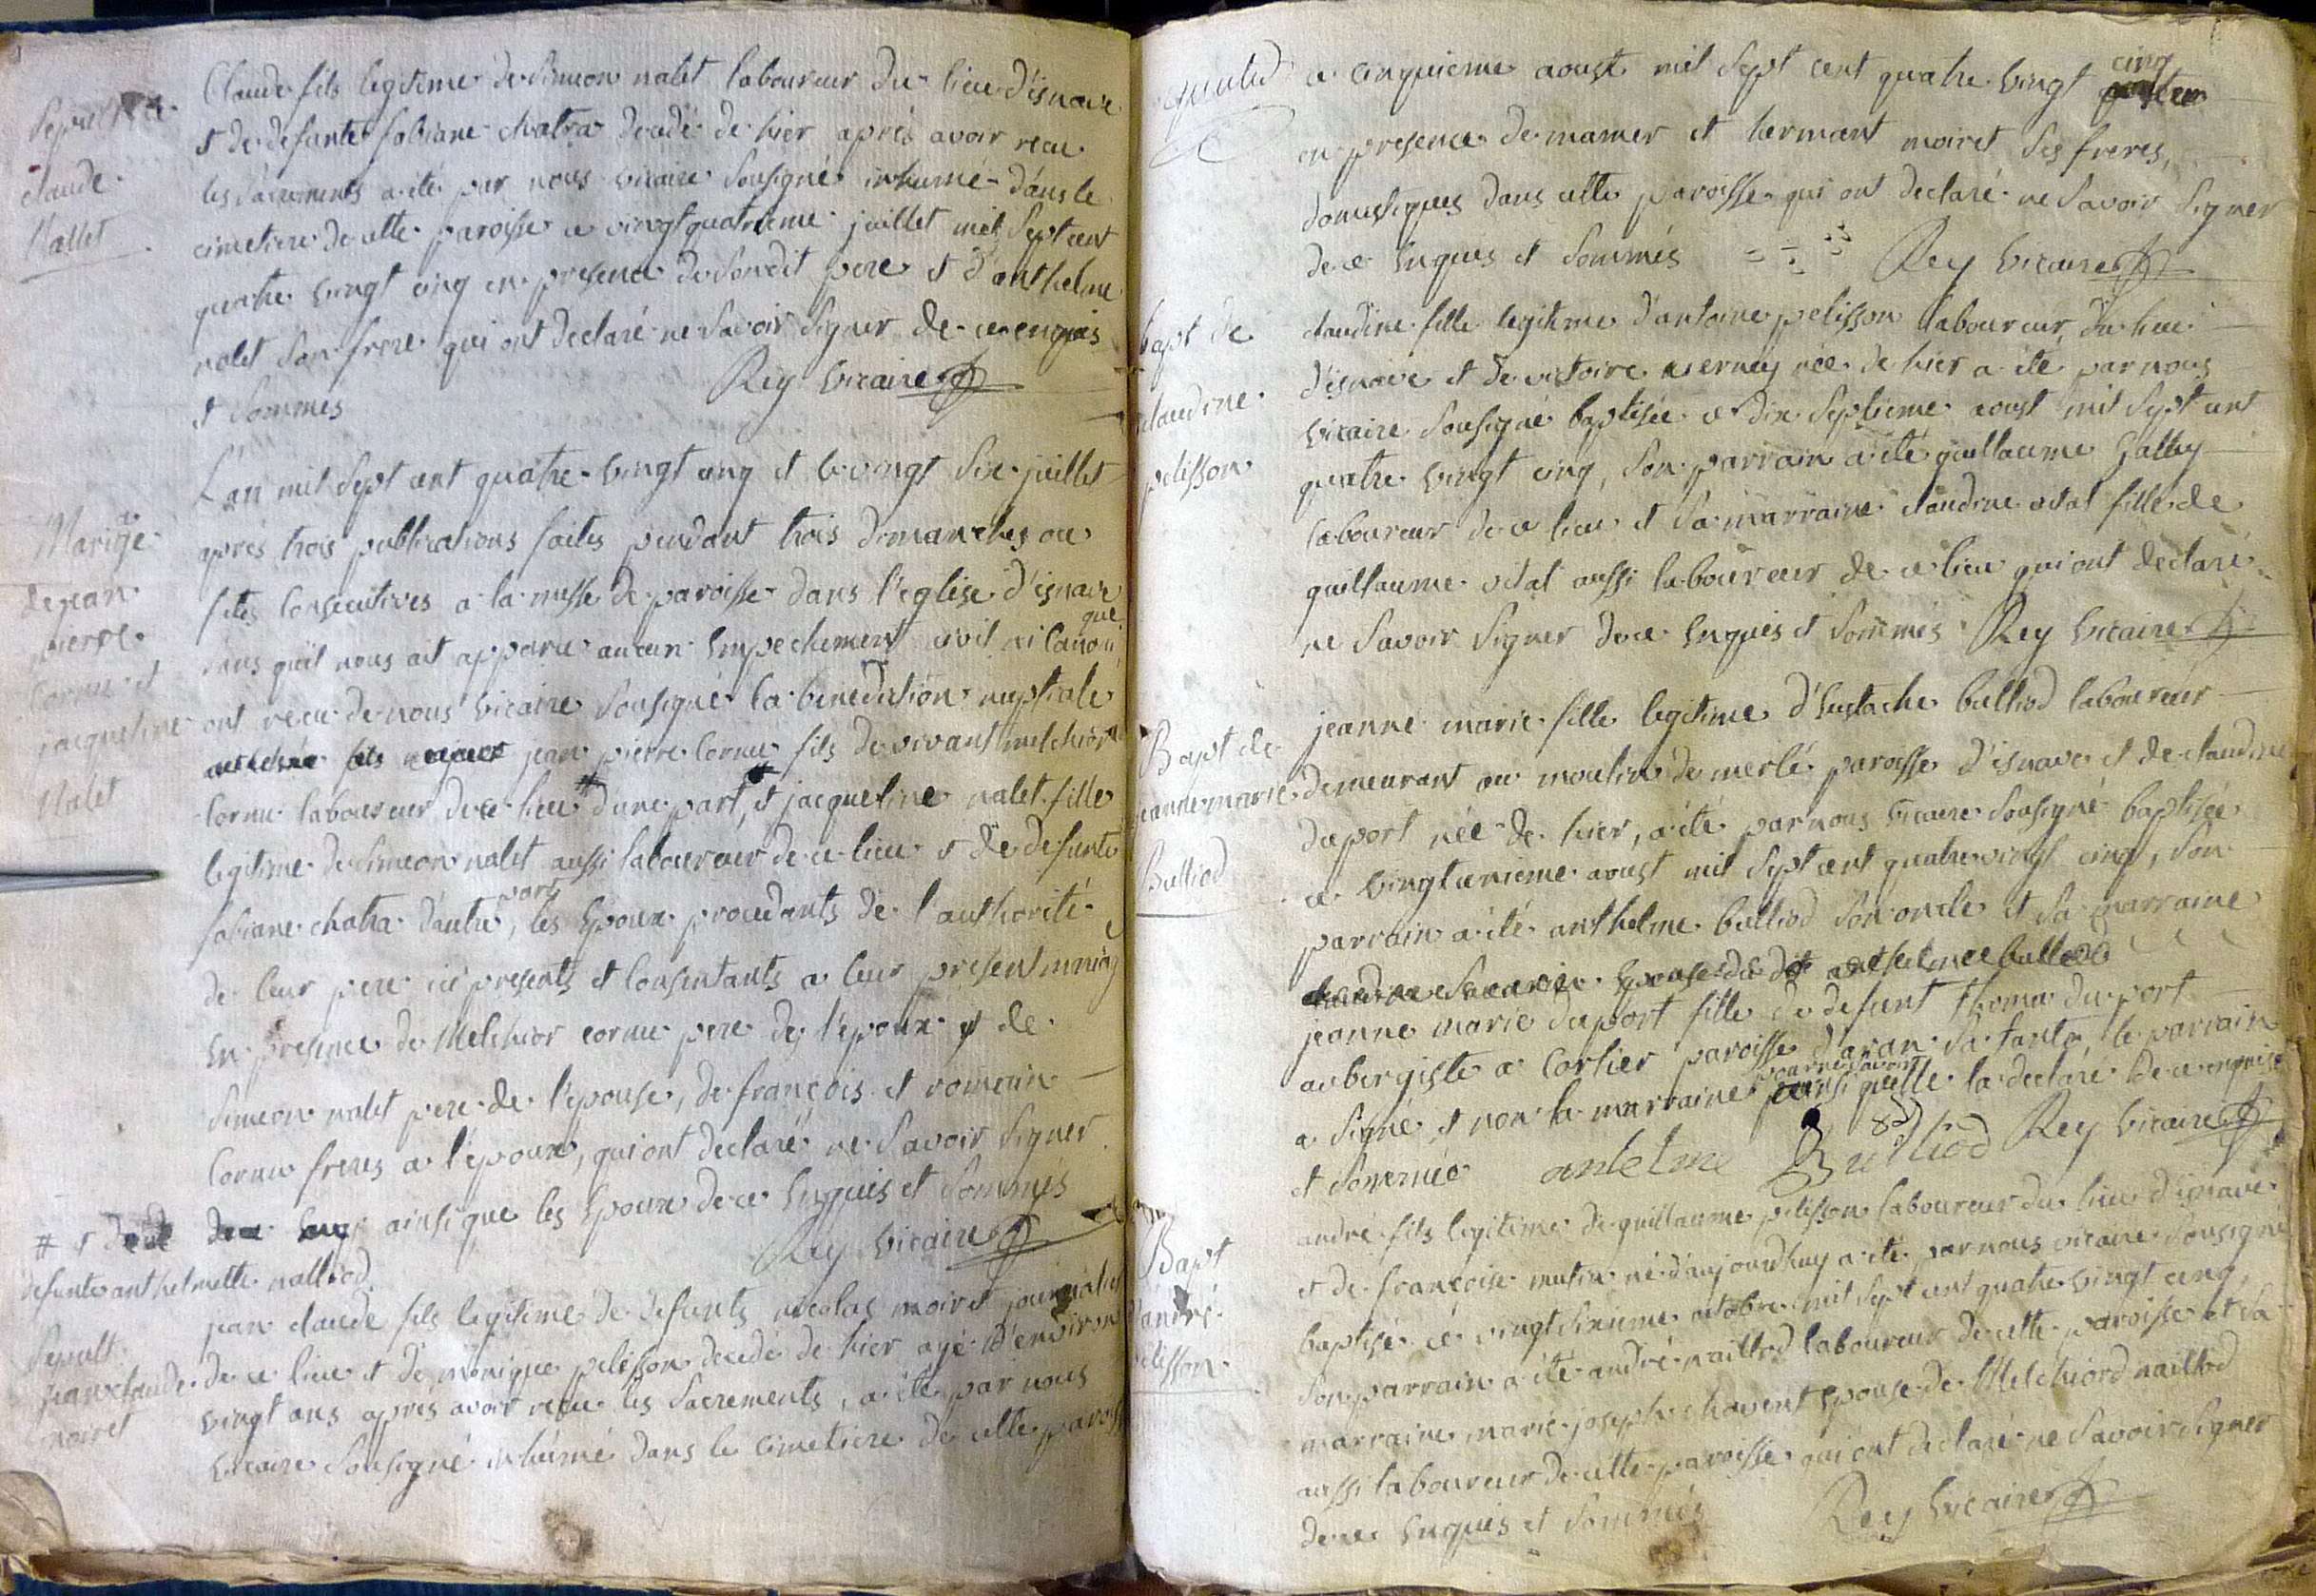 Claude fils legitime de Simeon nalet laboureur du lieu d'isnave
et de defunte fabiane chatra decedé de hier aprés avoir recu
les sacrements a été par nous vicaire sousigné inhumé dans le
cimetiere de cette paroisse ce vingtquatrieme juillet mil sept cent
quatre vingt cinq en presence de sondit pere et d'anthelme
nalet son frere qui ont declaré ne savoir signer de ce enquis
et sommés Rey vicaire
claude
Nallet
L'an mil sept cent quatre-vingt cinq et le vingt six juillet
aprés trois publications faites pendant trois dimanches ou
fetes consecutives a la messe de paroisse dans l'eglise d'isnave
sans qu'il nous ait apparu aucun empechement civil ni canoni
que
ont recu de nous vicaire sousigné la benediction nuptiale
jean pierre Cornu fils de vivant melchior
Cornu laboureur de ce lieu # d'une part, et jacqueline nalet fille
legitime de Simeon nalet aussi laboureur de ce lieu et de defunte
fabiane chatra d'autre part, les epoux procedants de l'authorité
de leur pere ici presents et consentants a leur present mariag
e
en presence de Melchior cornu pere de l'epoux et de
Simeon nalet pere de l'epouse, de françois et romain
Cornu freres a l'epoux, qui ont declaré ne savoir signer
ainsi que les epoux de ce enquis et sommés
Rey vicaire
Mariage
de jean
pierre
Cornu et
jacqueline
Nalet
# et de
defunte anthelmette nalliod
jean claude fils legitime de defunts nicolas moiret journalier
de ce lieu et de monique pelisson decedé de hier agé d'environ
vingt ans aprés avoir recu les sacrements, a été par nous
vicaire sousigné inhumé dans le cimetiere de cette paroisse
Sepult
jean claude
moiret
ce cinquieme aoust mil sept cent quatre vingt cinq
en presence de mamer et hermant moiret ses freres,
domestiques dans cette paroisse qui ont declaré ne savoir signer
de ce enquis et sommés Rey vicaire
claudine fille legitime d'antoine pelisson laboureur, du lieu
d'isnave et de victoire née de hier a été par nous
vicaire sousigné baptisée ce dix septieme aoust mil sept cent
quatre vingt cinq, son parrain a été guillaume
laboureur de ce lieu et sa marraine claudine vital fille de
guillaume vital aussi laboureur de ce lieu qui ont declaré
ne savoir signer de ce enquis et sommés Rey vicaire
bapt de
claudine
pelisson
jeanne marie fille legitime d'Eustache bulliod laboureur
demeurant au moulin de merlé paroisse d'isnave et de claudine
duport née de hier, a été par nous vicaire sousigné baptisée
ce vingtunieme aoust mil sept cent quatrevingt cinq, son
parrain a été anthelme bulliod son oncle et sa marraine
jeanne marie duport fille de defunt thoma du port
aubergiste a Corlier paroisse d'aran sa tante, le parrain
a signé et non la marraine pour ne savoir
ainsi quelle la declaré de ce enquise
et sommée antelme Bulliod Rey vicaire
Bapt de
jeanne marie
Bulliod
andré fils legitime de guillaume pelisson laboureur du lieu d'isnave
et de francoise mutin né d'aujourdhuy a été par nous vicaire sousigné
baptisé ce vingt sixieme octobre mil sept cent quatre vingt cinq,
son parrain a été andré naillod laboureur de cette paroisse et sa
marraine marie joseph chavent epouse de Melchiord naillod
aussi laboureur de cette paroisse qui ont declaré ne savoir signer
de ce enquis et sommés Rey vicaire
Bapt
d'andré
pelisson